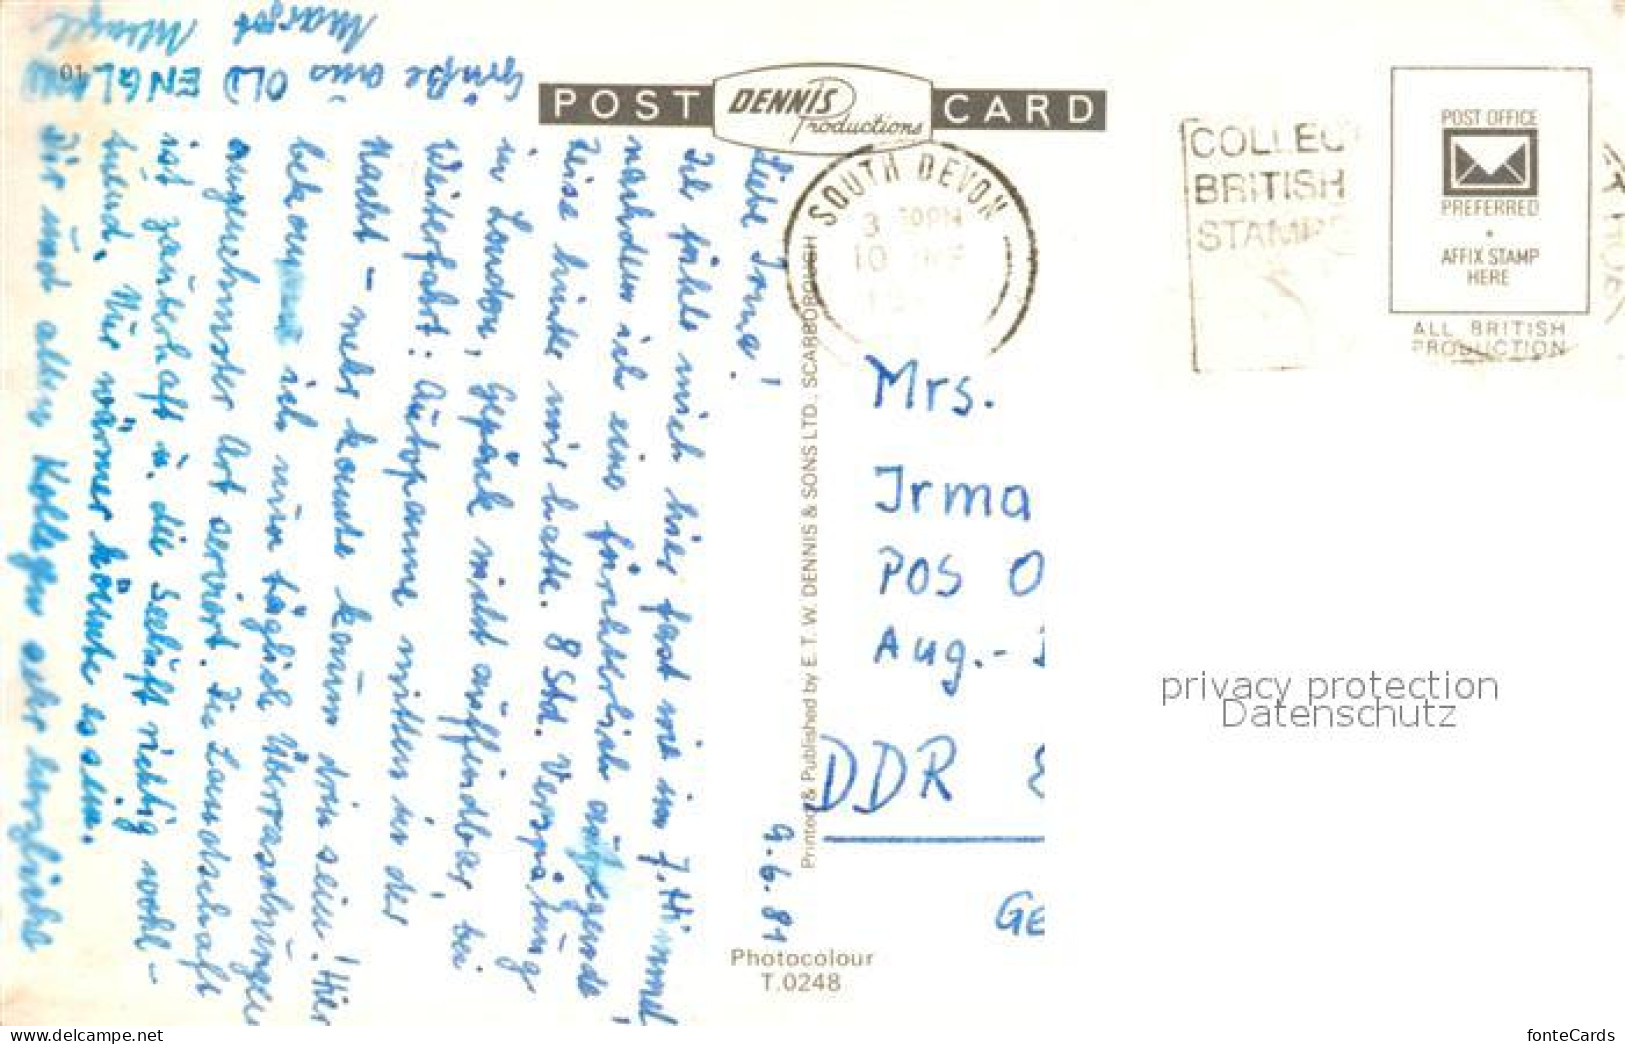 POST DENNIS Productions CARD
POST OFFICE
PREFERRED
AFFIX STAMP
HERE
ALL BRITISH
PRODUCTION
SOUTH DEVON
3
10
COLLECT
BRITISH
STAMPS
9.6.81
Liebe Irma!
Ich fühle mich hier fast wie im 7. Himmel
nachdem ich eine fürchterlich aufregende
Reise hinter mir hatte. 8 Std. Verspätung
in London, Gepäck nicht auffindbar, bei
Weiterfahrt: Autopanne mitten in der
Nacht – mehr konnte kaum drin sein! Hier
bekomme ich nun täglich Überraschungen
angenehmster Art serviert. Die Landschaft
ist zauberhaft u. die Seeluft richtig wohl-
tuend. Nur wärmer könnte es sein.
Dir und allen Kollegen sehr herzliche
Grüße aus OLD ENGLAND
Margot
Mrs.
Irma
POS O
Aug.-
DDR
GE
Printed & Published by E. T. W. DENNIS & SONS LTD., SCARBOROUGH
Photocolour
T.0248
01
privacy protection
Datenschutz
www.delcampe.net
fonteCards